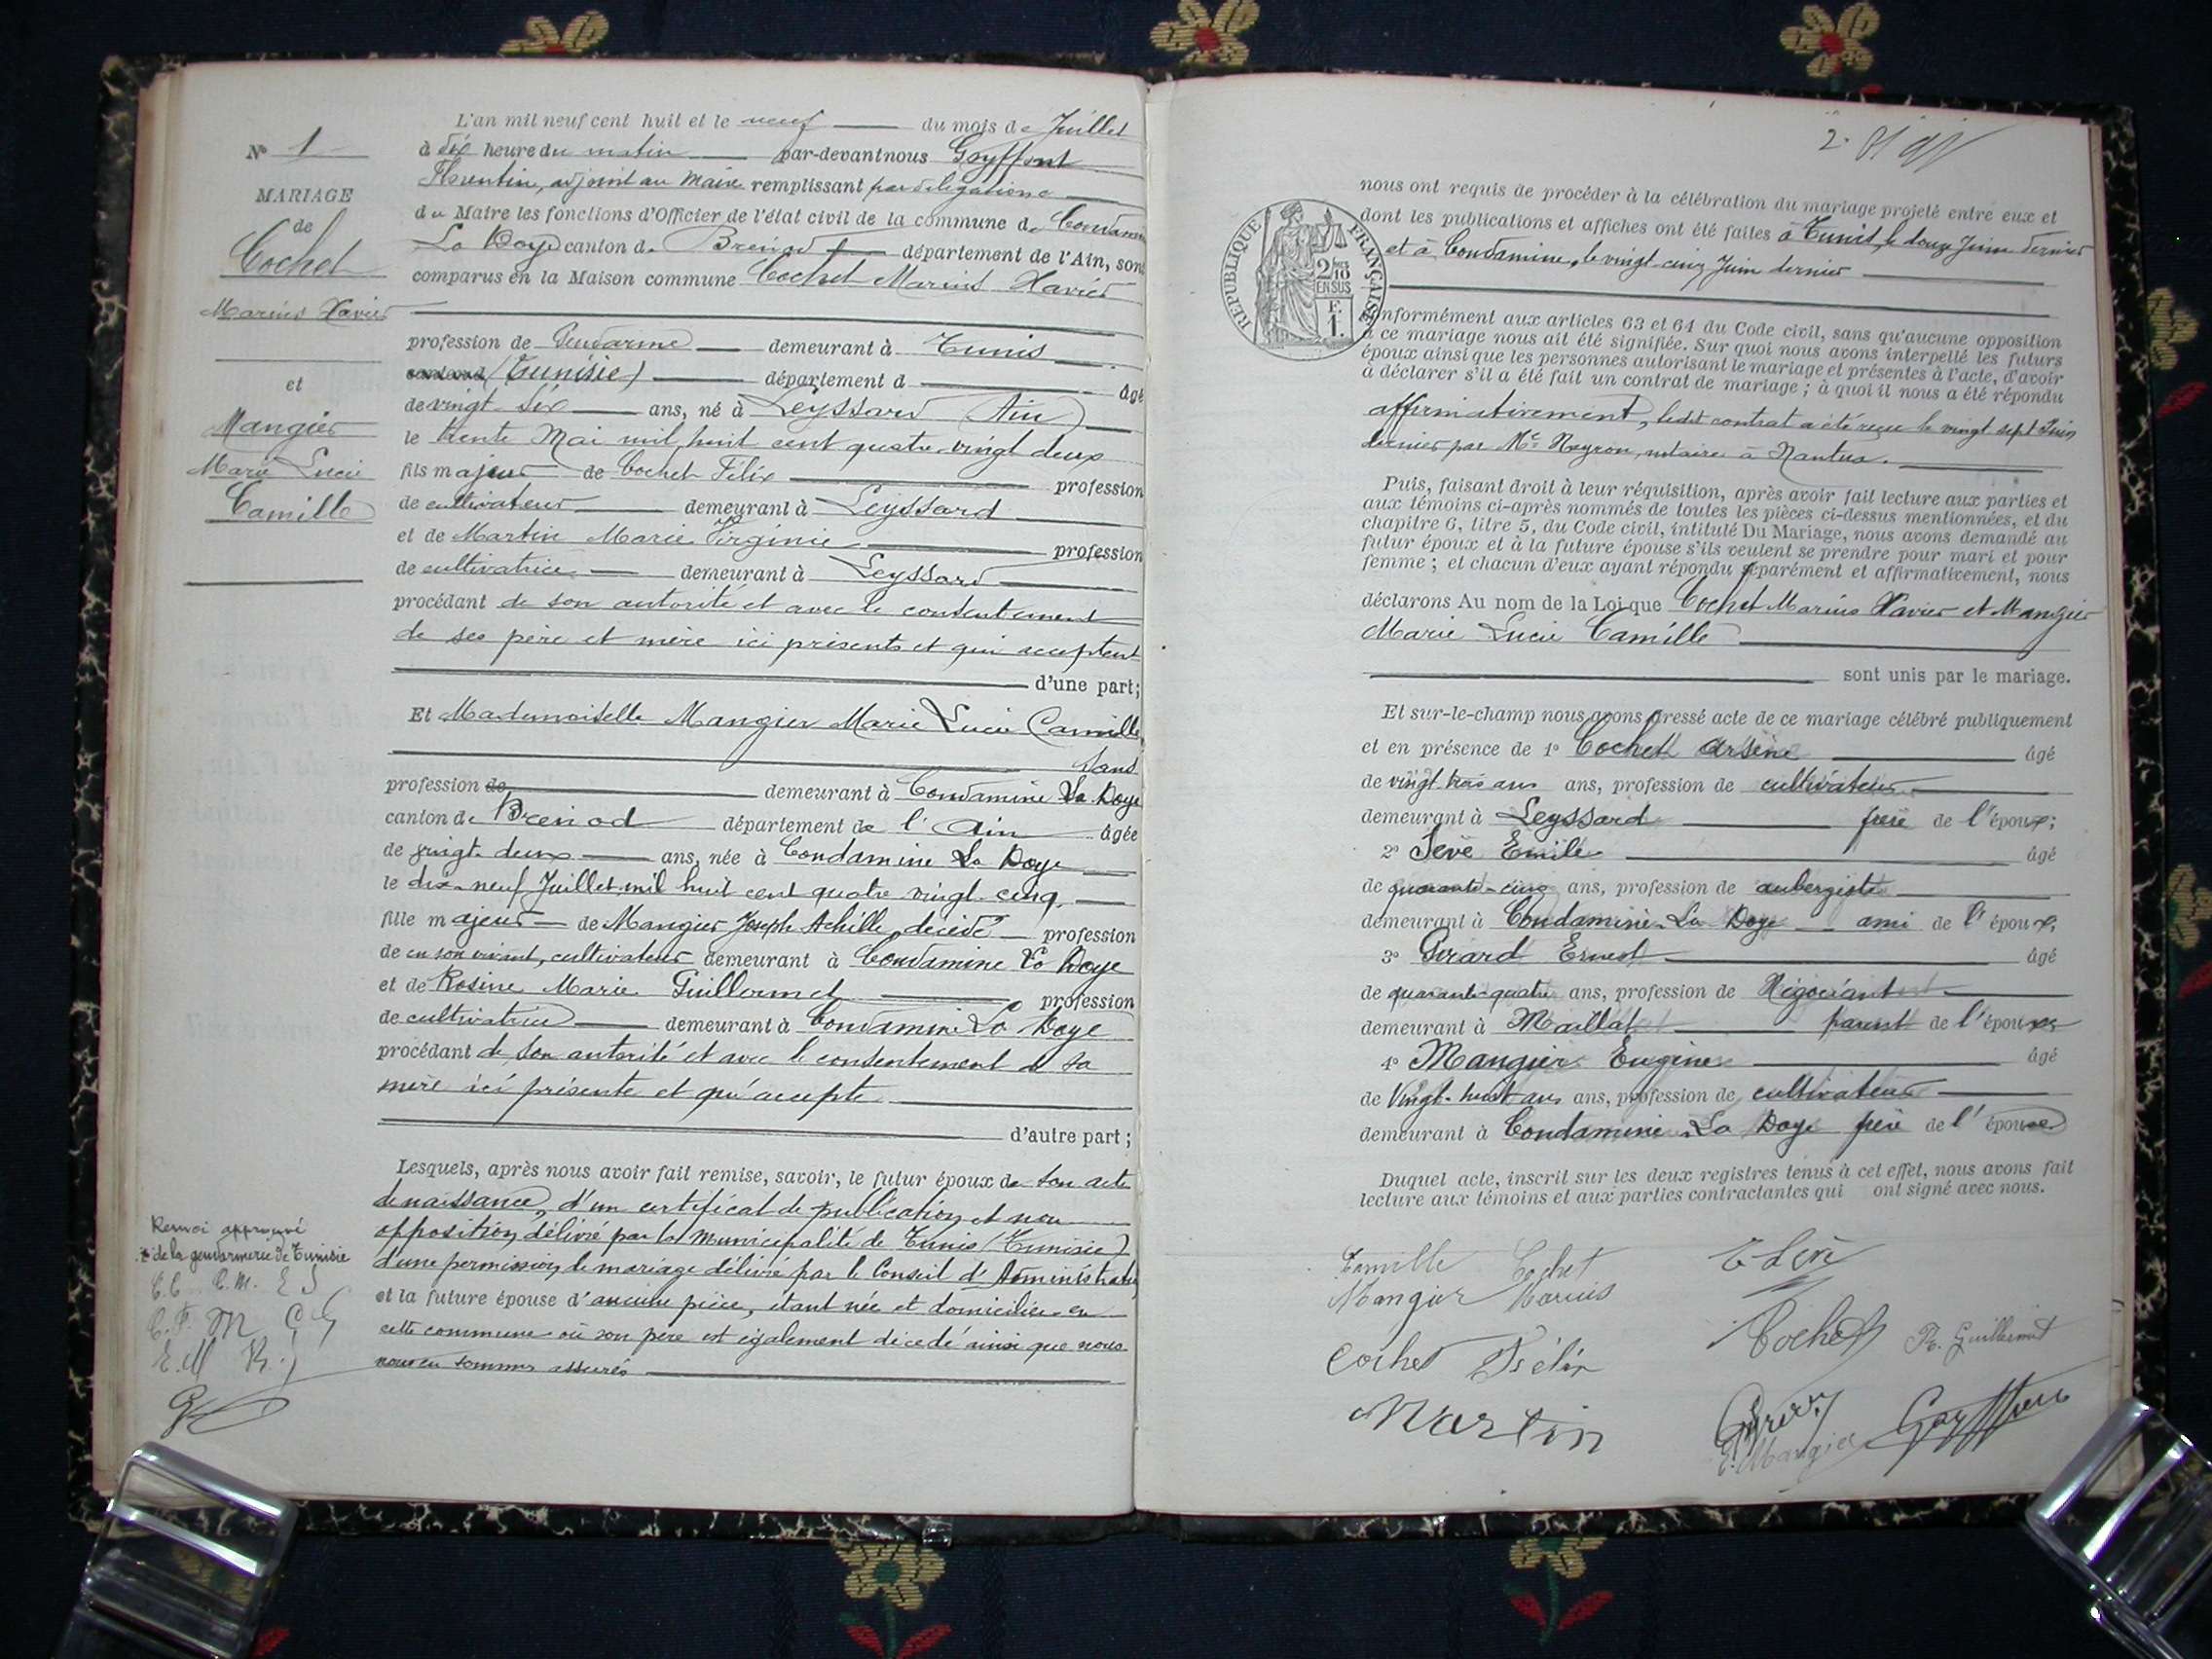 N° 1
MARIAGE
de
Cochet
Marius Xavier
et
Mangier
Marie Lucie
Camille
L'an mil neuf cent huit et le neuf du mois de Juillet
à dix heure du matin par-devant nous Goyffont
Florentin, adjoint au Maire remplissant par délégation
du Maire les fonctions d'Officier de l'état civil de la commune de Condamine
La Doye canton de Brénod département de l'Ain, sont
comparus en la Maison commune Cochet Marius Xavier
profession de Gendarme demeurant à Tunis
(Tunisie) département d âgé
de vingt six ans, né à Leyssard (Ain)
le trente Mai mil huit cent quatre-vingt deux
fils majeur de Cochet Félix profession
de cultivateur demeurant à Leyssard
et de Martin Marie Virginie profession
de cultivatrice demeurant à Leyssard
procédant de son autorité et avec le consentement
de ses père et mère ici présents et qui acceptent
d'une part;
Et Mademoiselle Mangier Marie Lucie Camille
sans
profession de demeurant à Condamine La Doye
canton de Brenod département de l'Ain âgée
de vingt-deux ans, née à Condamine La Doye
le dix-neuf Juillet mil huit cent quatre vingt-cinq
fille majeure de Mangier Joseph Achille, décédé profession
de en son vivant, cultivateur demeurant à Condamine La Doye
et de Rosine Marie Guillermet profession
de cultivatrice demeurant à Condamine La Doye
procédant de son autorité et avec le consentement de sa
mère ici présente et qui accepte
d'autre part;
Lesquels, après nous avoir fait remise, savoir, le futur époux de son acte
de naissance, d'un certificat de publication et non
opposition délivré par la Municipalité de Tunis (Tunisie)
d'une permission de mariage délivré par le Conseil d'Administration
et la future épouse d'aucune pièce, étant née et domiciliée en
cette commune où son père est également décédé ainsi que nous
nous en sommes assurés
Renvoi approuvé
de la gendarmerie de Tunisie
C.C. C.M. E S
C.F. M
E.M
nous ont requis de procéder à la célébration du mariage projeté entre eux et
dont les publications et affiches ont été faites à Tunis, le douze Juin dernier
et à Condamine, le vingt-cinq Juin dernier
REPUBLIQUE FRANÇAISE
2/10
EN SUS
F.
1.
Conformément aux articles 63 et 64 du Code civil, sans qu'aucune opposition
à ce mariage nous ait été signifiée. Sur quoi nous avons interpellé les futurs
époux ainsi que les personnes autorisant le mariage et présentes à l'acte, d'avoir
à déclarer s'il a été fait un contrat de mariage; à quoi il nous a été répondu
affirmativement, ledit contrat a été reçu le vingt sept Juin
dernier par Me Neyron, notaire à Nantua.
Puis, faisant droit à leur réquisition, après avoir fait lecture aux parties et
aux témoins ci-après nommés de toutes les pièces ci-dessus mentionnées, et du
chapitre 6, titre 5, du Code civil, intitulé Du Mariage, nous avons demandé au
futur époux et à la future épouse s'ils veulent se prendre pour mari et pour
femme; et chacun d'eux ayant répondu séparément et affirmativement, nous
déclarons Au nom de la Loi que Cochet Marius Xavier et Mangier
Marie Lucie Camille
sont unis par le mariage.
Et sur-le-champ nous avons dressé acte de ce mariage célébré publiquement
et en présence de 1° Cochet Arsène âgé
de vingt trois ans ans, profession de cultivateur
demeurant à Leyssard frère de l'époux;
2° Sève Emile âgé
de quarante-cinq ans, profession de aubergiste
demeurant à Condamine La Doye ami de l'époux;
3° Girard Ernest âgé
de quarante-quatre ans, profession de Négociant
demeurant à Maillat parent de l'épouse
4° Mangier Eugène âgé
de Vingt-huit ans ans, profession de cultivateur
demeurant à Condamine La Doye frère de l'épouse
Duquel acte, inscrit sur les deux registres tenus à cet effet, nous avons fait
lecture aux témoins et aux parties contractantes qui ont signé avec nous.
Camille Cochet E Sève
Mangier Marius
Cochet R. Guillermet
Cochet Félix
Martin
E. Mangier Goyffon